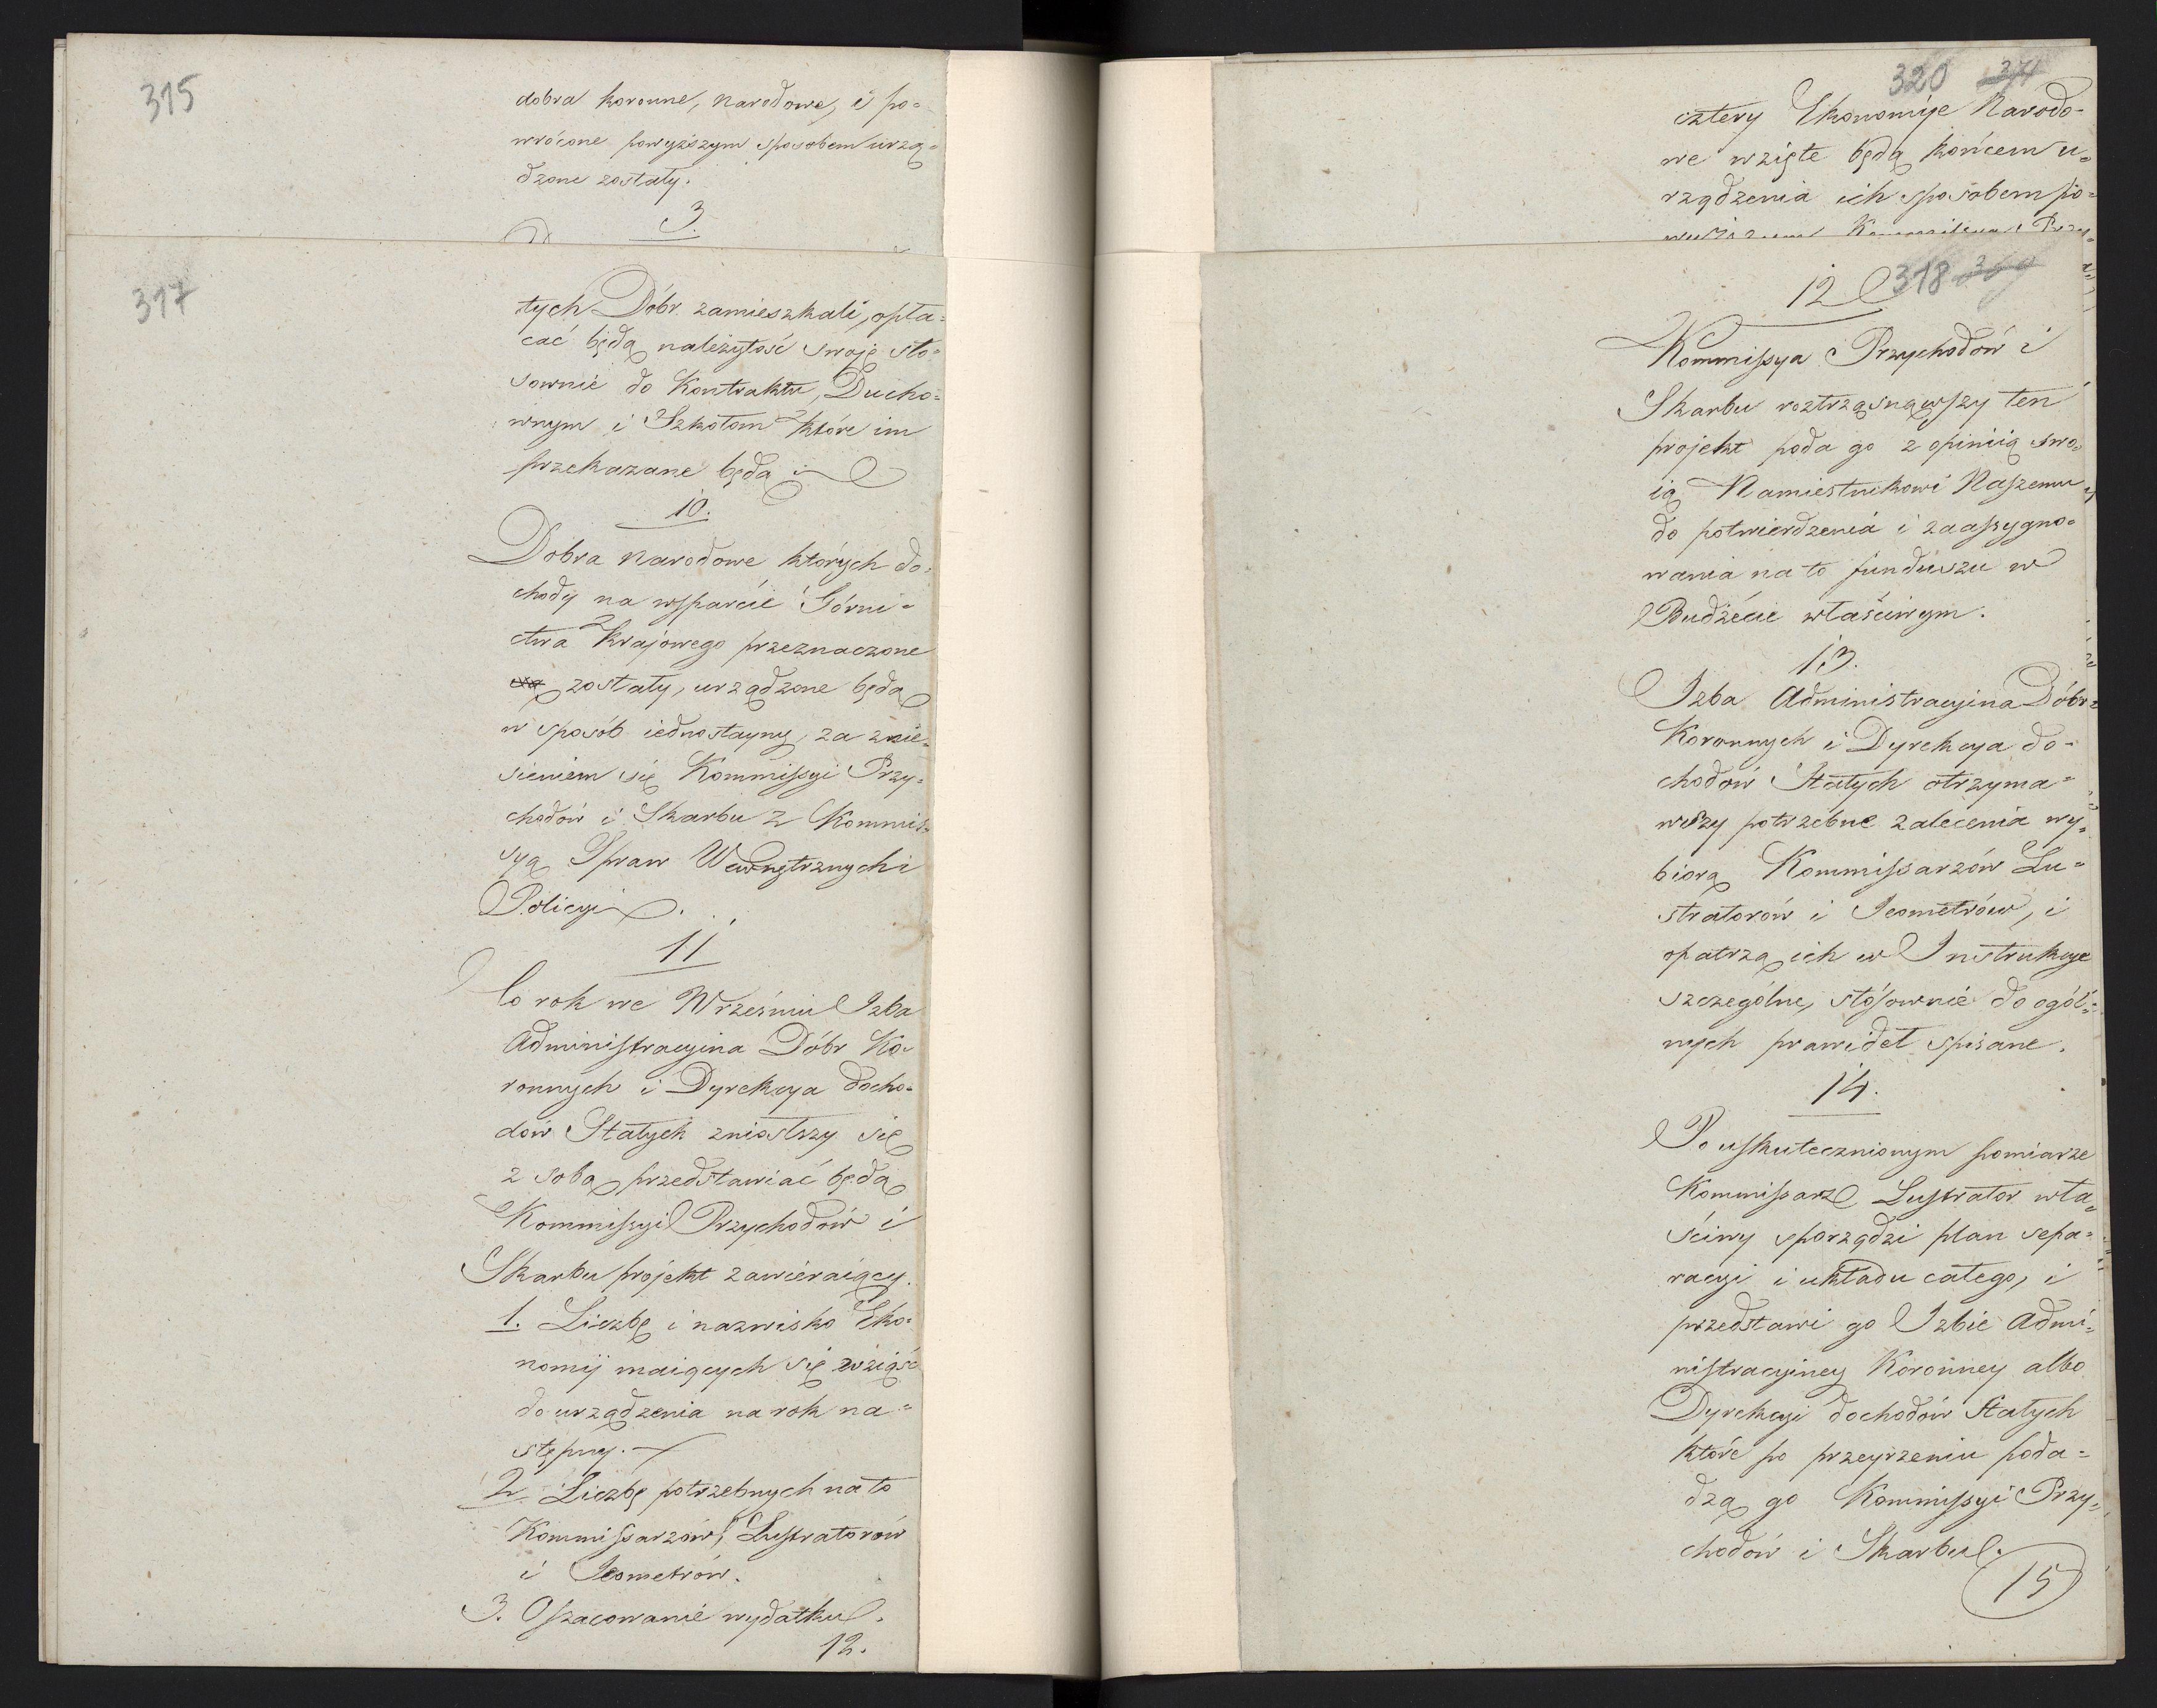 315
dobra koronne, narodowe, i po=
wrócone powyższym sposobem urzą=
dzone zostały.
3.
317
tych Dóbr zamieszkali, opła=
cać będą należytość swoję sto=
sownie do Kontraktu, Ducho=
wnym i Szkołom które im
przekazane będą
10.
Dobra Narodowe których do=
chody na wsparcie Górni=
ctwa Krajowego przeznaczone
zostały, urządzone będą
w sposób iednostayny, za znie=
sieniem się Kommissyi Przy=
chodów i Skarbu z Kommis=
syą Spraw Wewnętrznych i
Policyi.
11
Co rok we Wrześniu Izba
Administracyina Dóbr Ko=
ronnych i Dyrekcya docho=
dów Stałych zniosłszy się
z sobą przedstawiać będą
Kommissyi Przychodów i
Skarbu projekt zawieraiący.
1. Liczbę i nazwisko Eko=
nomij maiących się wziąść
do urządzenia na rok na=
stępny.
2. Liczbę potrzebnych na to
Kommissarzów, Lustratorów
i Jeometrów.
3. Oszacowanie wydatku.
12.
320 371
cztery Ekonomije Narodo=
we wzięte będą końcem u=
rządzenia ich sposobem po=
318 369
12
Kommissya Przychodów i
Skarbu roztrząsnąwszy ten
projekt poda go z opiniią swo=
ią Namiestnikowi Naszemu
do potwierdzenia i zaassygno=
wania na to funduszu w
Budżecie właściwym.
13.
Izba Administracyina Dóbr
Koronnych i Dyrekcya do=
chodów Stałych otrzyma=
wszy potrzebne zalecenia wy=
biorą Kommissarzów Lu=
stratorów i Jeometrów, i
opatrzą ich w Instrukcye
szczególne, stósownie do ogól=
nych prawideł spisane.
14.
Po uskutecznionym pomiarze
Kommissarz Lustrator wła=
ściwy sporządzi plan sepa=
racyi i układu całego, i
przedstawi go Izbie Admi=
nistracyiney Koronney albo
Dyrekcyi dochodów Stałych
które po przeyrzeniu poda=
dzą go Kommissyi Przy=
chodów i Skarbu.
15